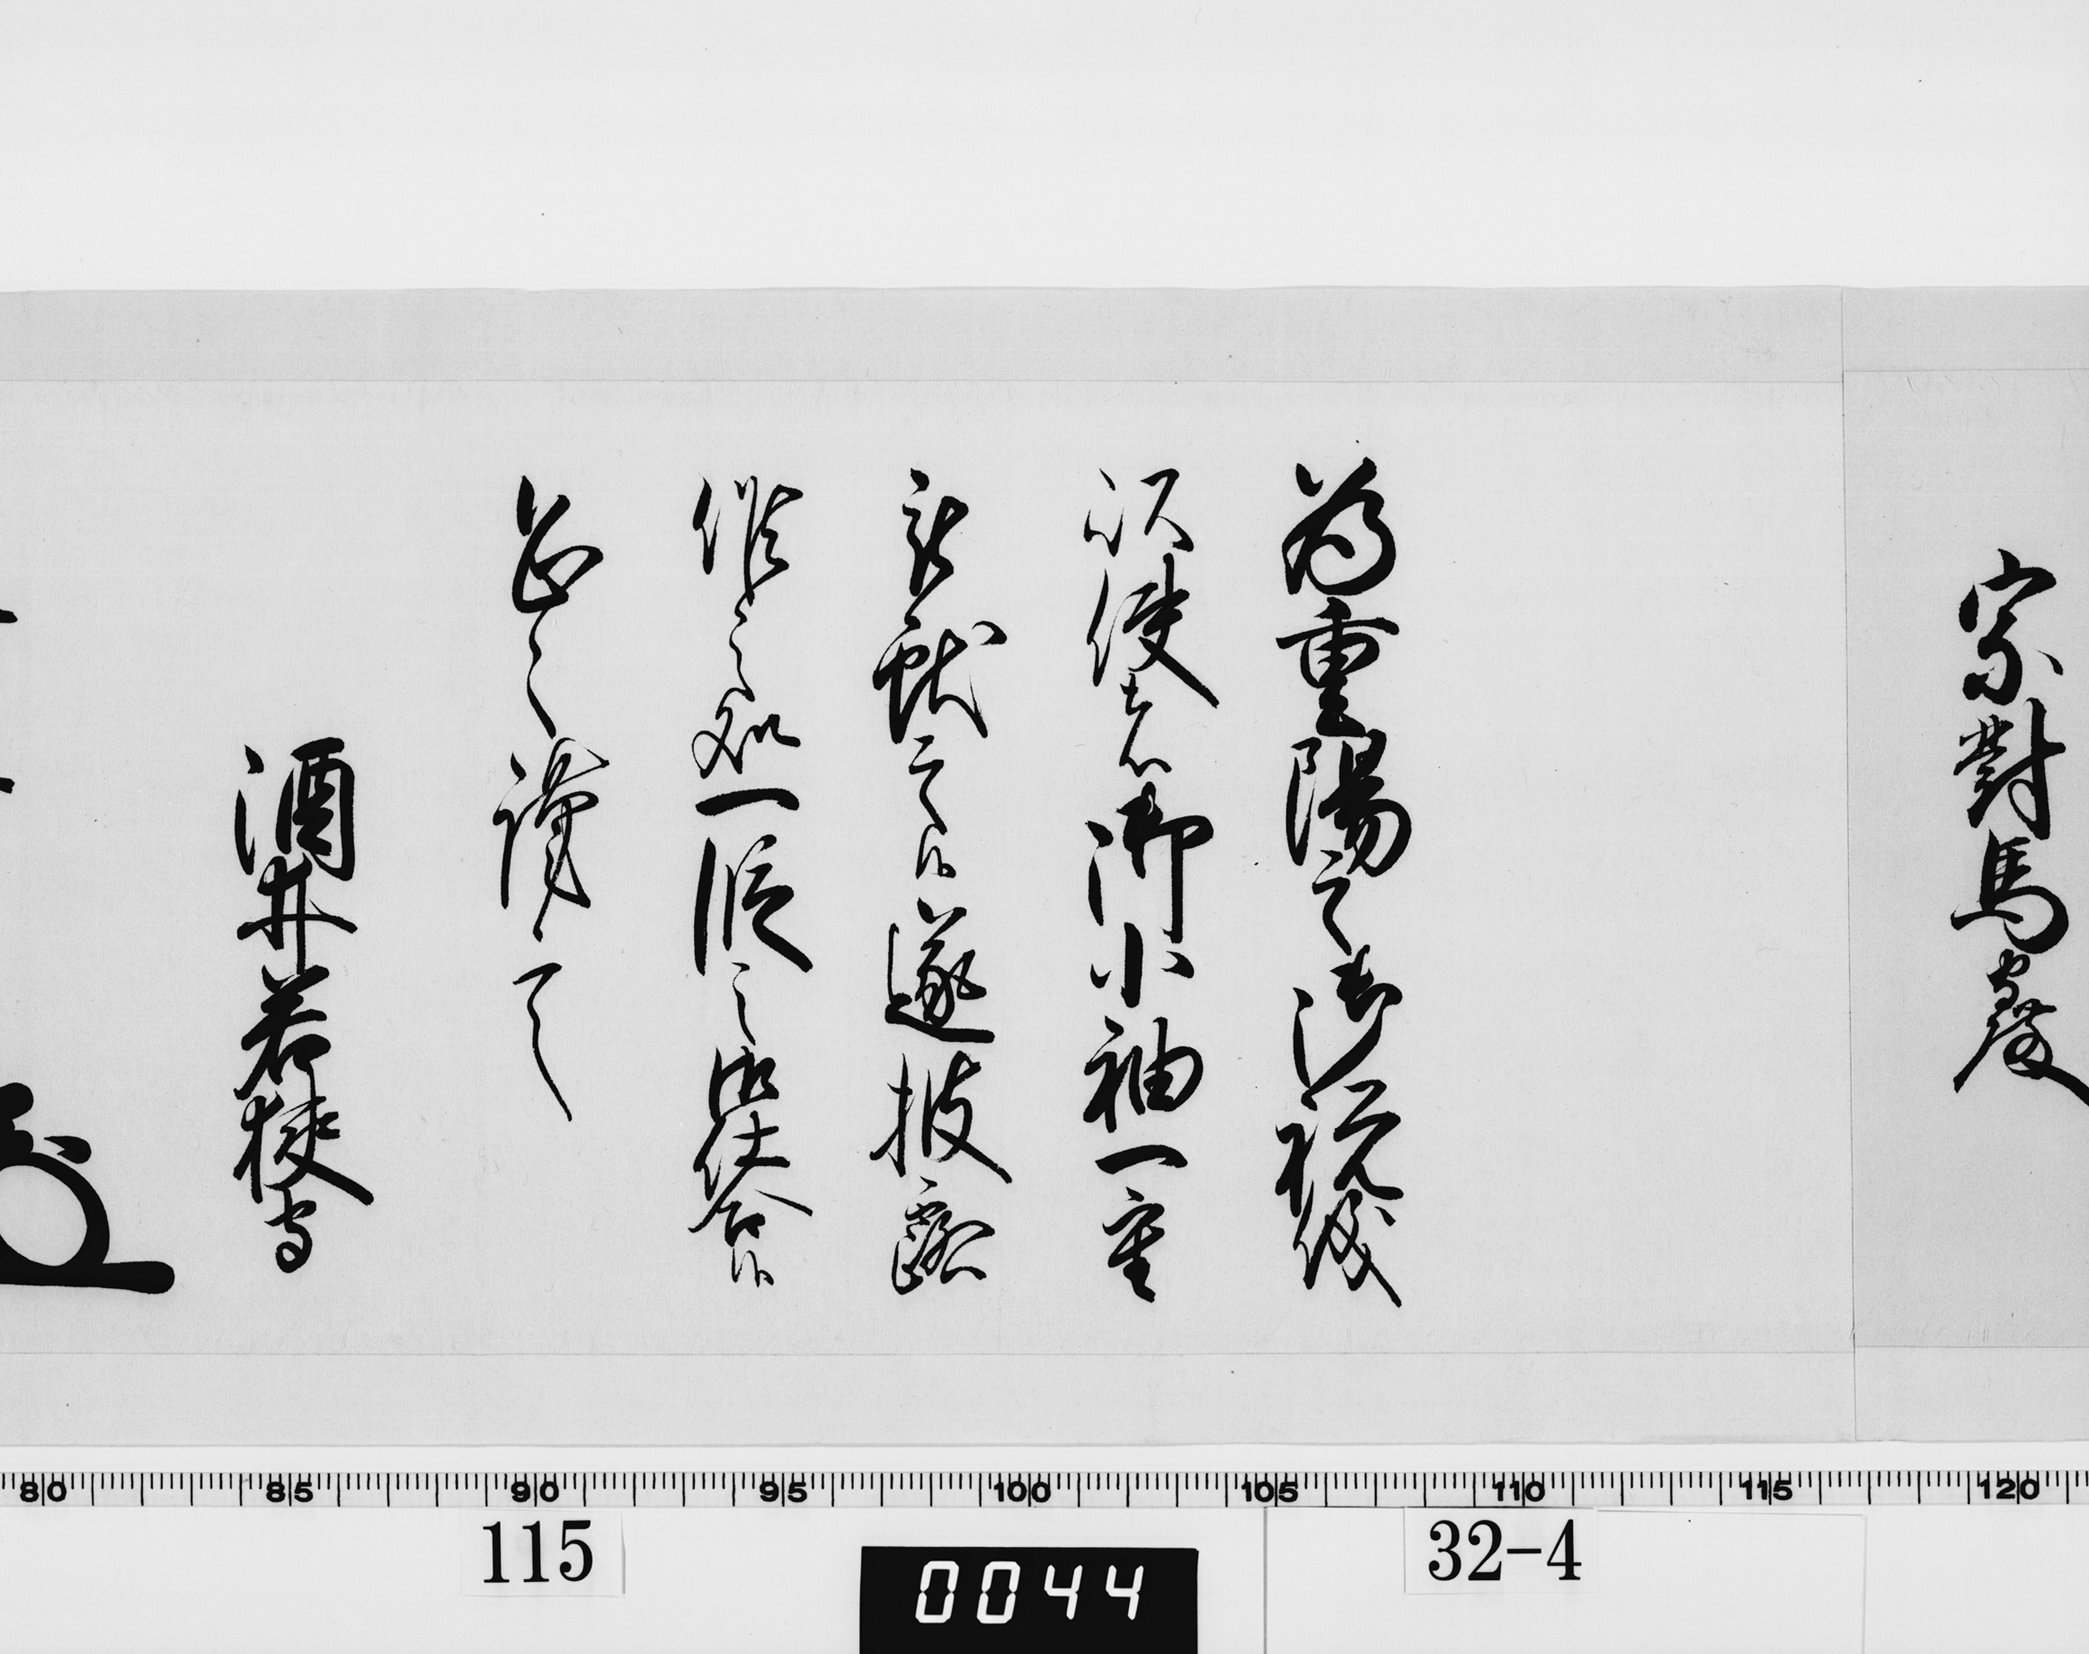 宗對馬守殿
為重陽之御祝儀
以使者御小袖一重
被献之候遂披露
候之処一段之御仕合候
恐々謹言
酒井若狭守
80 85 90 95 100 105 110 115 120
115
0044
32-4